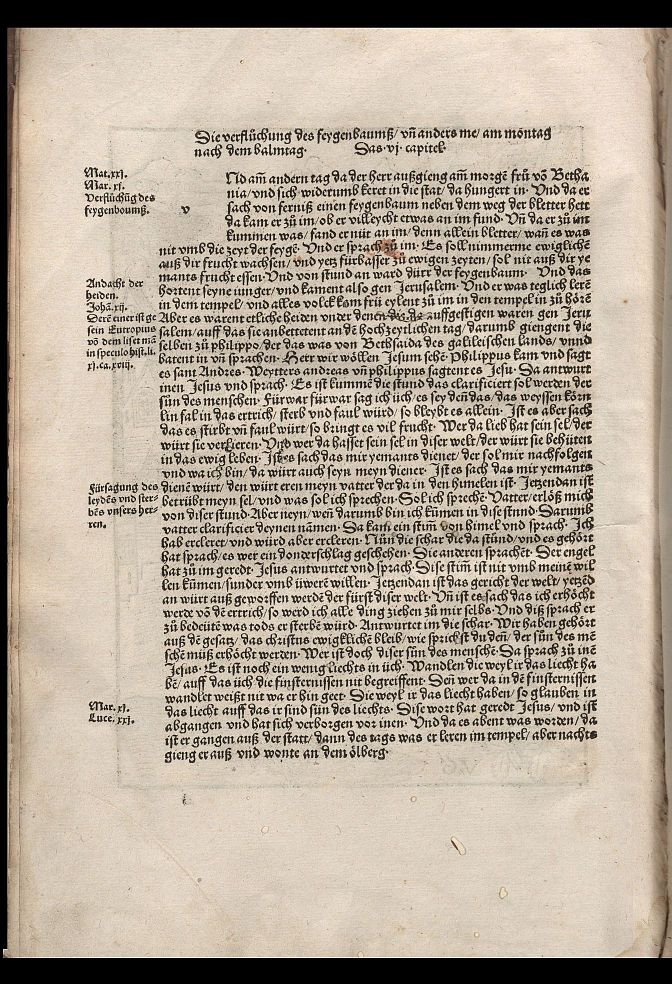 Die verflůchung des feygenbaumß/ vñ anders me/ am môntag
nach dem balmtag. Das .vj. capitel.
Mat. xxj.
Mar. xj.
Verflůchũg des
feygenboumß.
v
Nd am̃ andern tag da der herr außgieng am̃ morgẽ frů võ Betha
nia/ vnd sich widerumb keret in die stat/ da hungert in. Vnd da er
sach von ferniß einen feygenbaum neben dem weg der bletter hett
da kam er zů im/ ob er villeycht etwas an im fund. Vñ da er zů im
kummen was/ fand er nüt an im/ denn allein bletter/ wañ es was
nit vmb die zeyt der feygẽ. Vnd er sprach zů im. Es soll nimmerme ewiglichẽ
auß dir frucht wachsen/ vnd yetz fürbasser zů ewigen zeyten/ sol nit auß dir ye
mants frucht essen. Vnd von stund an ward dürr der feygenbaum. Vnd das
hortent seyne iunger/ vnd kament also gen Jerusalem. Vnd er was teglich lerẽ
in dem tempel/ vnd alles volck kam frü eylent zů im in den tempel in zů hôrẽ
Andacht der
heiden.
Johã. xij.
Derẽ einer ist ge
sein Eutropius
võ dem liset mã
in speculo hist. li.
xj. ca. xviij.
Aber es warent etliche heiden vnder denen die da auffgestigen waren gen Jeru
salem/ auff das sie anbettetent an dẽ hochzeytlichen tag/ darumb giengent die
selben zů philippo/ der das was von Bethsaida des galileischen lands/ vnnd
batent in vñ sprachen. Herr wir wôllen Jesum sehẽ. Philippus kam vnd sagt
es sant Andres. Weytters andreas vñ philippus sagtent es Jesu. Da antwurt
inen Jesus vnd sprach. Es ist kummẽ die stund das clarificiert sol werden der
sün des menschen. Fürwar fürwar sag ich üch/ es sey deñ das/ das weyssen kôrn
lin fal in das ertrich/ sterb vnd faul würd/ so bleybt es allein. Ist es aber sach
das es stirbt vñ faul würt/ so bringt es vil frucht. Wer da lieb hat sein sel/ der
würt sie verlieren. Vnd wer da hasset sein sel in diser welt/ der würt sie behüten
in das ewig leben. Ist es sach das mir yemants dienet/ der sol mir nachfolgen
vnd wa ich bin/ da würt auch seyn meyn diener. Ist es sach das mir yemants
Fürsagung des
leydẽs vnd ster-
bẽs vnsers her-
ren.
dienẽ würt/ den würt eren meyn vatter der da in den himelen ist. Jetzendan ist
betrübt meyn sel/ vnd was sol ich sprechen. Sol ich sprechẽ. Vatter/ erlôß mich
von diser stund. Aber neyn/ weñ darumb bin ich kũmen in dise stund. Darumb
vatter clarificier deynen namen. Da kam ein stim̃ von himel vnd sprach. Ich
hab ercleret/ vnd würd aber ercleren. Nũn die schar die da stünd/ vnd es gehôrt
hat sprach/ es wer ein donderschlag geschehen. Die anderen sprachẽt. Der engel
hat zů im geredt. Jesus antwurtet vnd sprach. Dise stim̃ ist nit vmb meinẽ wil
len kũmen/ sunder vmb üwerẽ willen. Jetzendan ist das gericht der welt/ yetzẽd
an würt auß geworffen werdẽ der fürst diser welt. Vñ ist es sach das ich erhôcht
werde võ dẽ ertrich/ so werd ich alle ding ziehen zů mir selbs. Vnd diß sprach er
zů bedeütẽ was tods er sterbẽ würd. Antwurtet im die schar. Wir haben gehôrt
auß dẽ gesatz/ das christus ewigklichẽ bleib/ wie sprichst du deñ/ der sün des mẽ
schẽ müß erhôcht werden. Wer ist doch diser sün des menschẽ. Da sprach zů inẽ
Jesus. Es ist noch ein wenig liechts in üch. Wandlen die weyl ir das liecht ha
bẽ/ auff das üch die finsternissen nit begreiffent. Deñ wer da in dẽ finsternissen
wandlet weißt nit wa er hin geet. Die weyl ir das liecht haben/ so glauben in
Mar. xj.
Luce. xxj.
das liecht auff das ir sind sün des liechts. Dise wort hat geredt Jesus/ vnd ist
abgangen vnd hat sich verborgen vor inen. Vnd da es abent was worden/ da
ist er gangen auß der statt/ dann des tags was er leren im tempel/ aber nachts
gieng er auß vnd wonte an dem ôlberg.